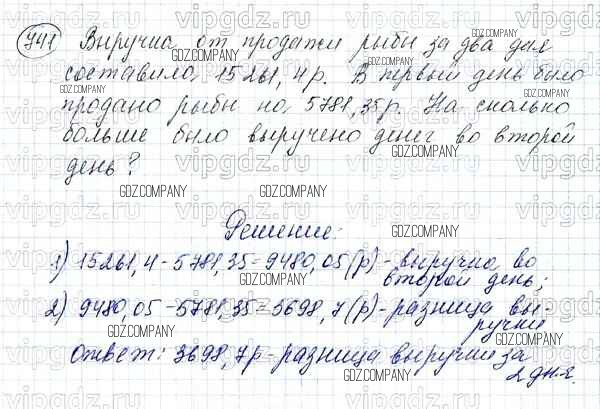 741 Выручка от продажи рыбы за два дня
составила 15261,4 р. В первый день было
продано рыбы на 5781,35 р. На сколько
больше было выручено денег во второй
день?
Решение:
1) 15261,4 - 5781,35 = 9480,05 (р) - выручка во
второй день;
2) 9480,05 - 5781,35 = 3698,7 (р) - разница вы-
ручки
Ответ: 3698,7 р - разница выручки за
2 дня.